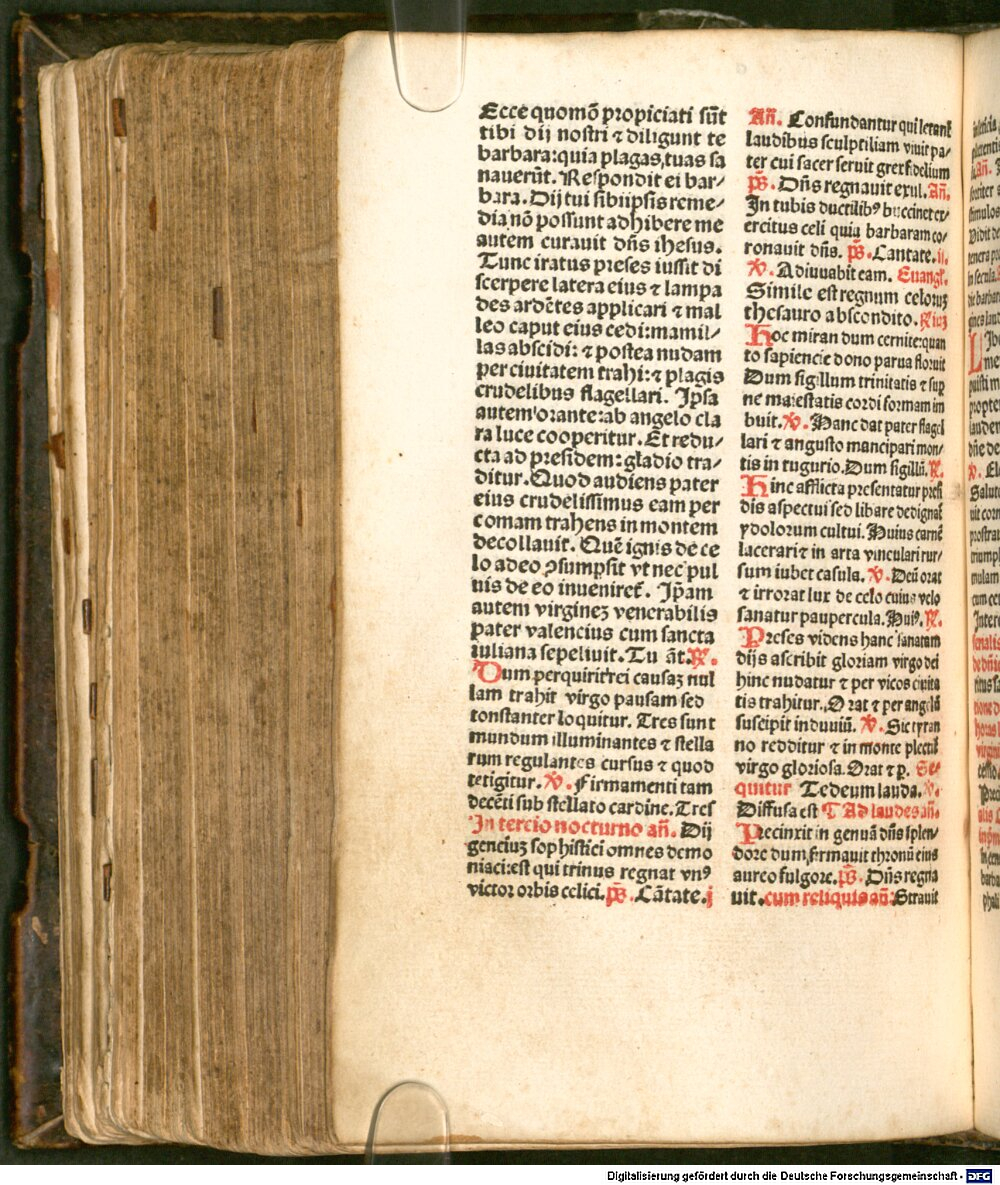 Ecce quomō propiciati sūt
tibi dij nostri ⁊ diligunt te
barbara:quia plagas tuas sa
nauerūt. Respondit ei bar⸗
bara. Dij tui sibi ipsis reme⸗
dia nō possunt adhibere me
autem curauit dn̄s ihesus.
Tunc iratus preses iussit di
scerpere latera eius ⁊ lampa
des ardētes applicari ⁊ mal
leo caput eius cedi:mamil⸗
las abscidi: ⁊ postea nudam
per ciuitatem trahi:⁊ plagis
crudelibus flagellari. Ip̄sa
autem orante:ab angelo cla
ra luce cooperitur. Et redu⸗
cta ad presidem:gladio tra⸗
ditur. Quod audiens pater
eius crudelissimus eam per
comam trahens in montem
decollauit. Quē ignis de ce
lo adeo ꝯsumpsit vt nec pul
uis de eo inueniret̄. Ip̄am
autem virginez venerabilis
pater valencius cum sancta
iuliana sepeliuit. Tu āt. ℟.
Dum perquirit rei causaz nul
lam trahit virgo pausam sed
constanter loquitur. Tres sunt
mundum illuminantes ⁊ stella
rum regulantes cursus ⁊ quod
tetigitur. ℣. Firmamenti tam
decēti sub stellato cardine. Tres
In tercio nocturno an̄. Dij
genciuz sophistici omnes demo
niaci:est qui trinus regnat vnꝰ
victor orbis celici. p̄s. Cātate. j
An̄. Confundantur qui
laudibus sculptiliam viuit pa⸗
ter cui sacer seruit grex fidelium
p̄s. Dn̄s regnauit exul. An̄.
In tubis ductilibꝰ buccinet ex⸗
ercitus celi quia barbaram co⸗
ronauit dn̄s. p̄s. Cantate. ij.
℣. Adiuuabit eam. Euangl̄.
Simile est regnum celoruz
thesauro abscondito.
Hoc mirandum cernite:quan
to sapiencie dono parua floruit
Dum sigillum trinitatis ⁊ sup
ne maiestatis cordi formam im
buit. ℣. Hanc dat pater flagel
lari ⁊ angusto mancipari mon⸗
tis in tugurio. Dum sigillū. ℟.
Hinc afflicta presentatur presi
dis aspectui sed libare dedignat̄
ydolorum cultui. Huius carnē
lacerari ⁊ in arta vinculari rur⸗
sum iubet casula. ℣. Deū orat
⁊ irrorat lux de celo cuius velo
sanatur paupercula. Huiꝰ. ℟.
Preses videns hanc sanatam
dijs ascribit gloriam virgo dei
hinc nudatur ⁊ per vicos ciuita
tis trahitur. Orat ⁊ per angelū
suscipit induuiū. ℣. Sic tyran
no redditur ⁊ in monte plectit̄
virgo gloriosa. Orat ⁊ p. Se⸗
quitur Te deum lauda. ℣.
Diffusa est ¶ Ad laudes an̄.
Precinxit in genuā dn̄s splen⸗
dore dum firmauit thronū eius
aureo fulgore. p̄s. Dn̄s regna
uit. cum reliquis an̄: Strauit
Digitalisierung gefördert durch die Deutsche Forschungsgemeinschaft - DFG